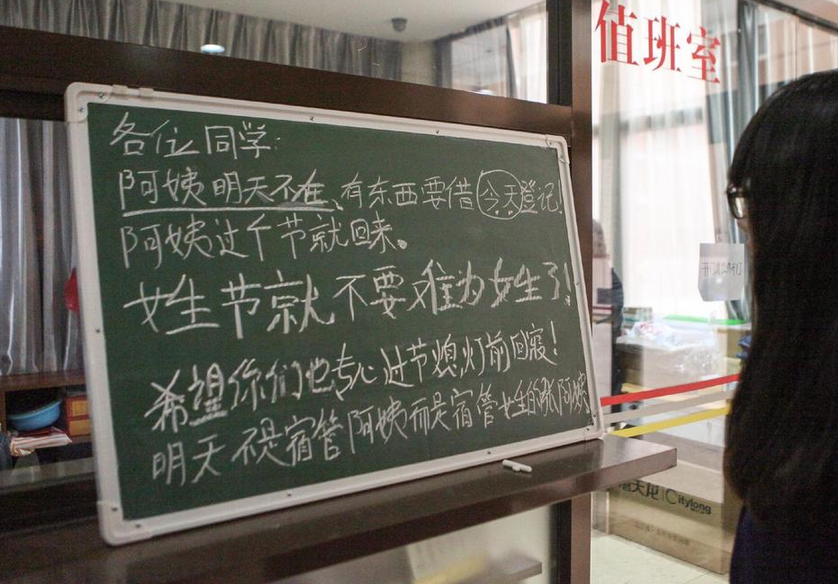 值班室
各位同学:
阿姨明天不在、有东西要借今天登记!
阿姨过个节就回来。
女生节就不要难为女生了!
希望你们也专心过节熄灯前回寝!
明天不是宿管阿姨而是宿管女生的阿姨
Citylong